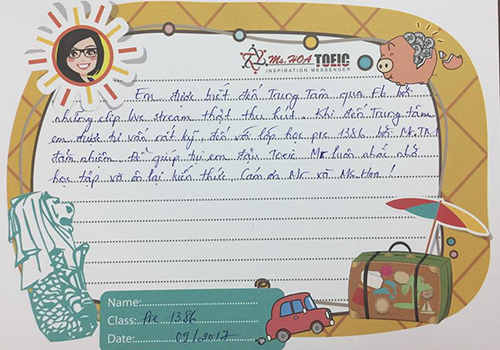 Ms.HOA TOEIC
INSPIRATION MESSENGER
Em được biết đến Trung Tâm qua Fb bởi
những clip live stream thật thu hút. Khi đến Trung tâm
em được tư vấn rất kỹ, đến với lớp học pre 1386 bởi Mr.
đảm nhiệm. Để giúp tụi em đậu Toeic Mr luôn nhắc nhở
học tập và ôn lại kiến thức. Cám ơn Mr và Ms.Hoa !
Name:
Class: Pre 1386
Date: 09/2017